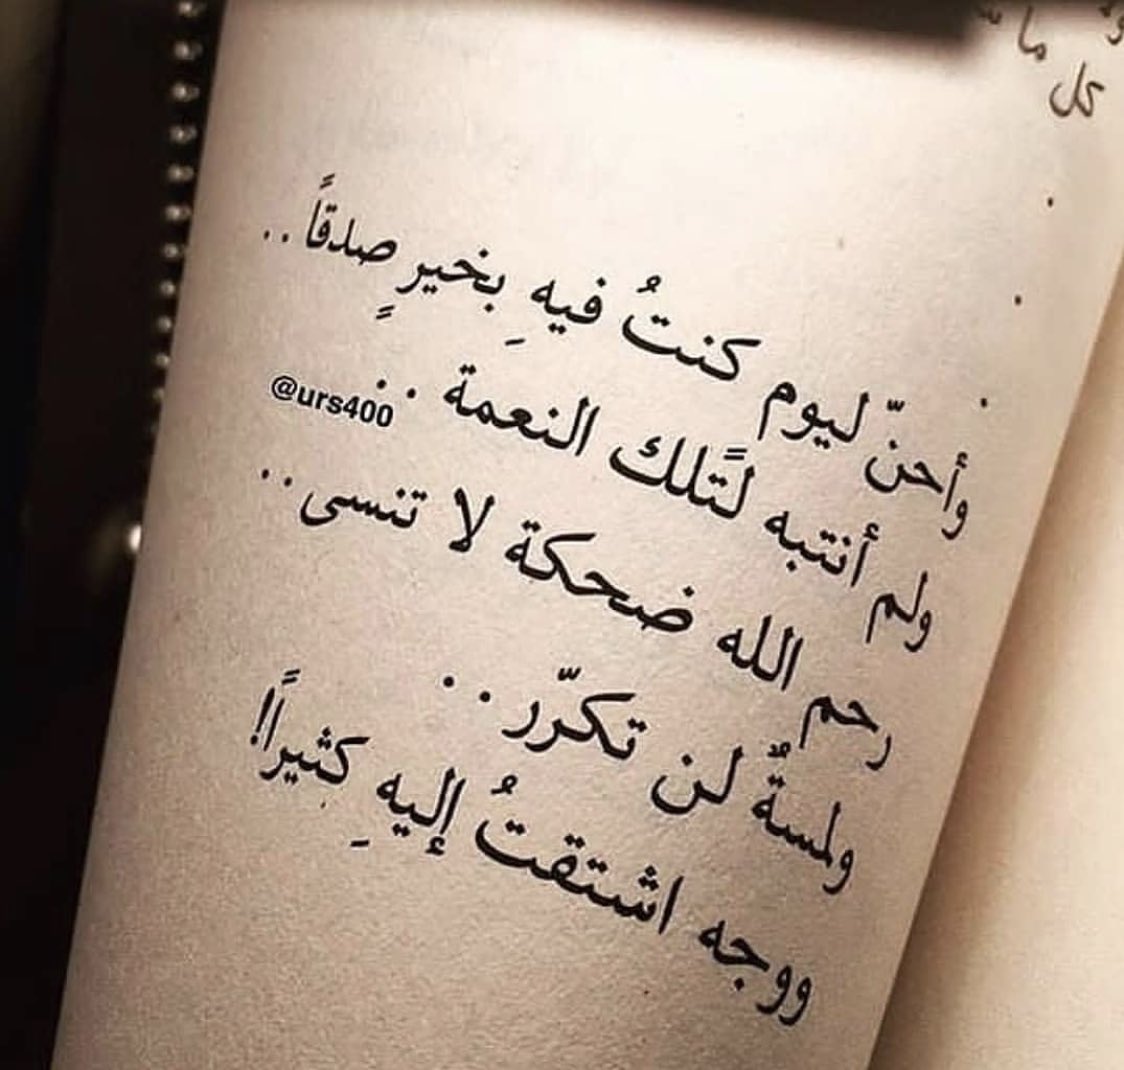 كل ما
وأحنّ ليوم كنتُ فيهِ بخيرٍ صدقاً ..
ولم أنتبه لتلك النعمة ..
@urs400
رحم الله ضحكة لا تنسى ..
ولمسةٌ لن تكرّر ..
ووجه اشتقتُ إليهِ كثيراً!